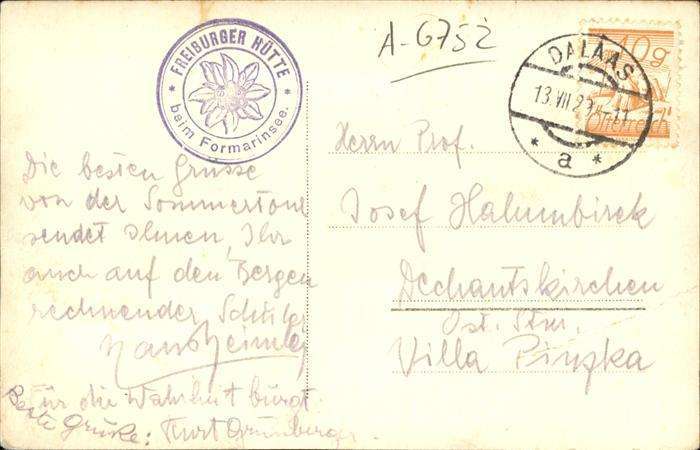 FREIBURGER HÜTTE
beim Formarinsee.
A-6752
10g
Österreich
DALAAS
13.VII.29
a
Die besten Grüsse
von der Sommertour
sendet Ihnen, Ihr
auch auf den Bergen
rechnender Schüler
Für die Wahrheit bürgt
Beste Grüße: Kurt Grünberger
Herrn Prof.
Josef Halumbirek
Dechantskirchen
Ost. Stm.
Villa Pinzka